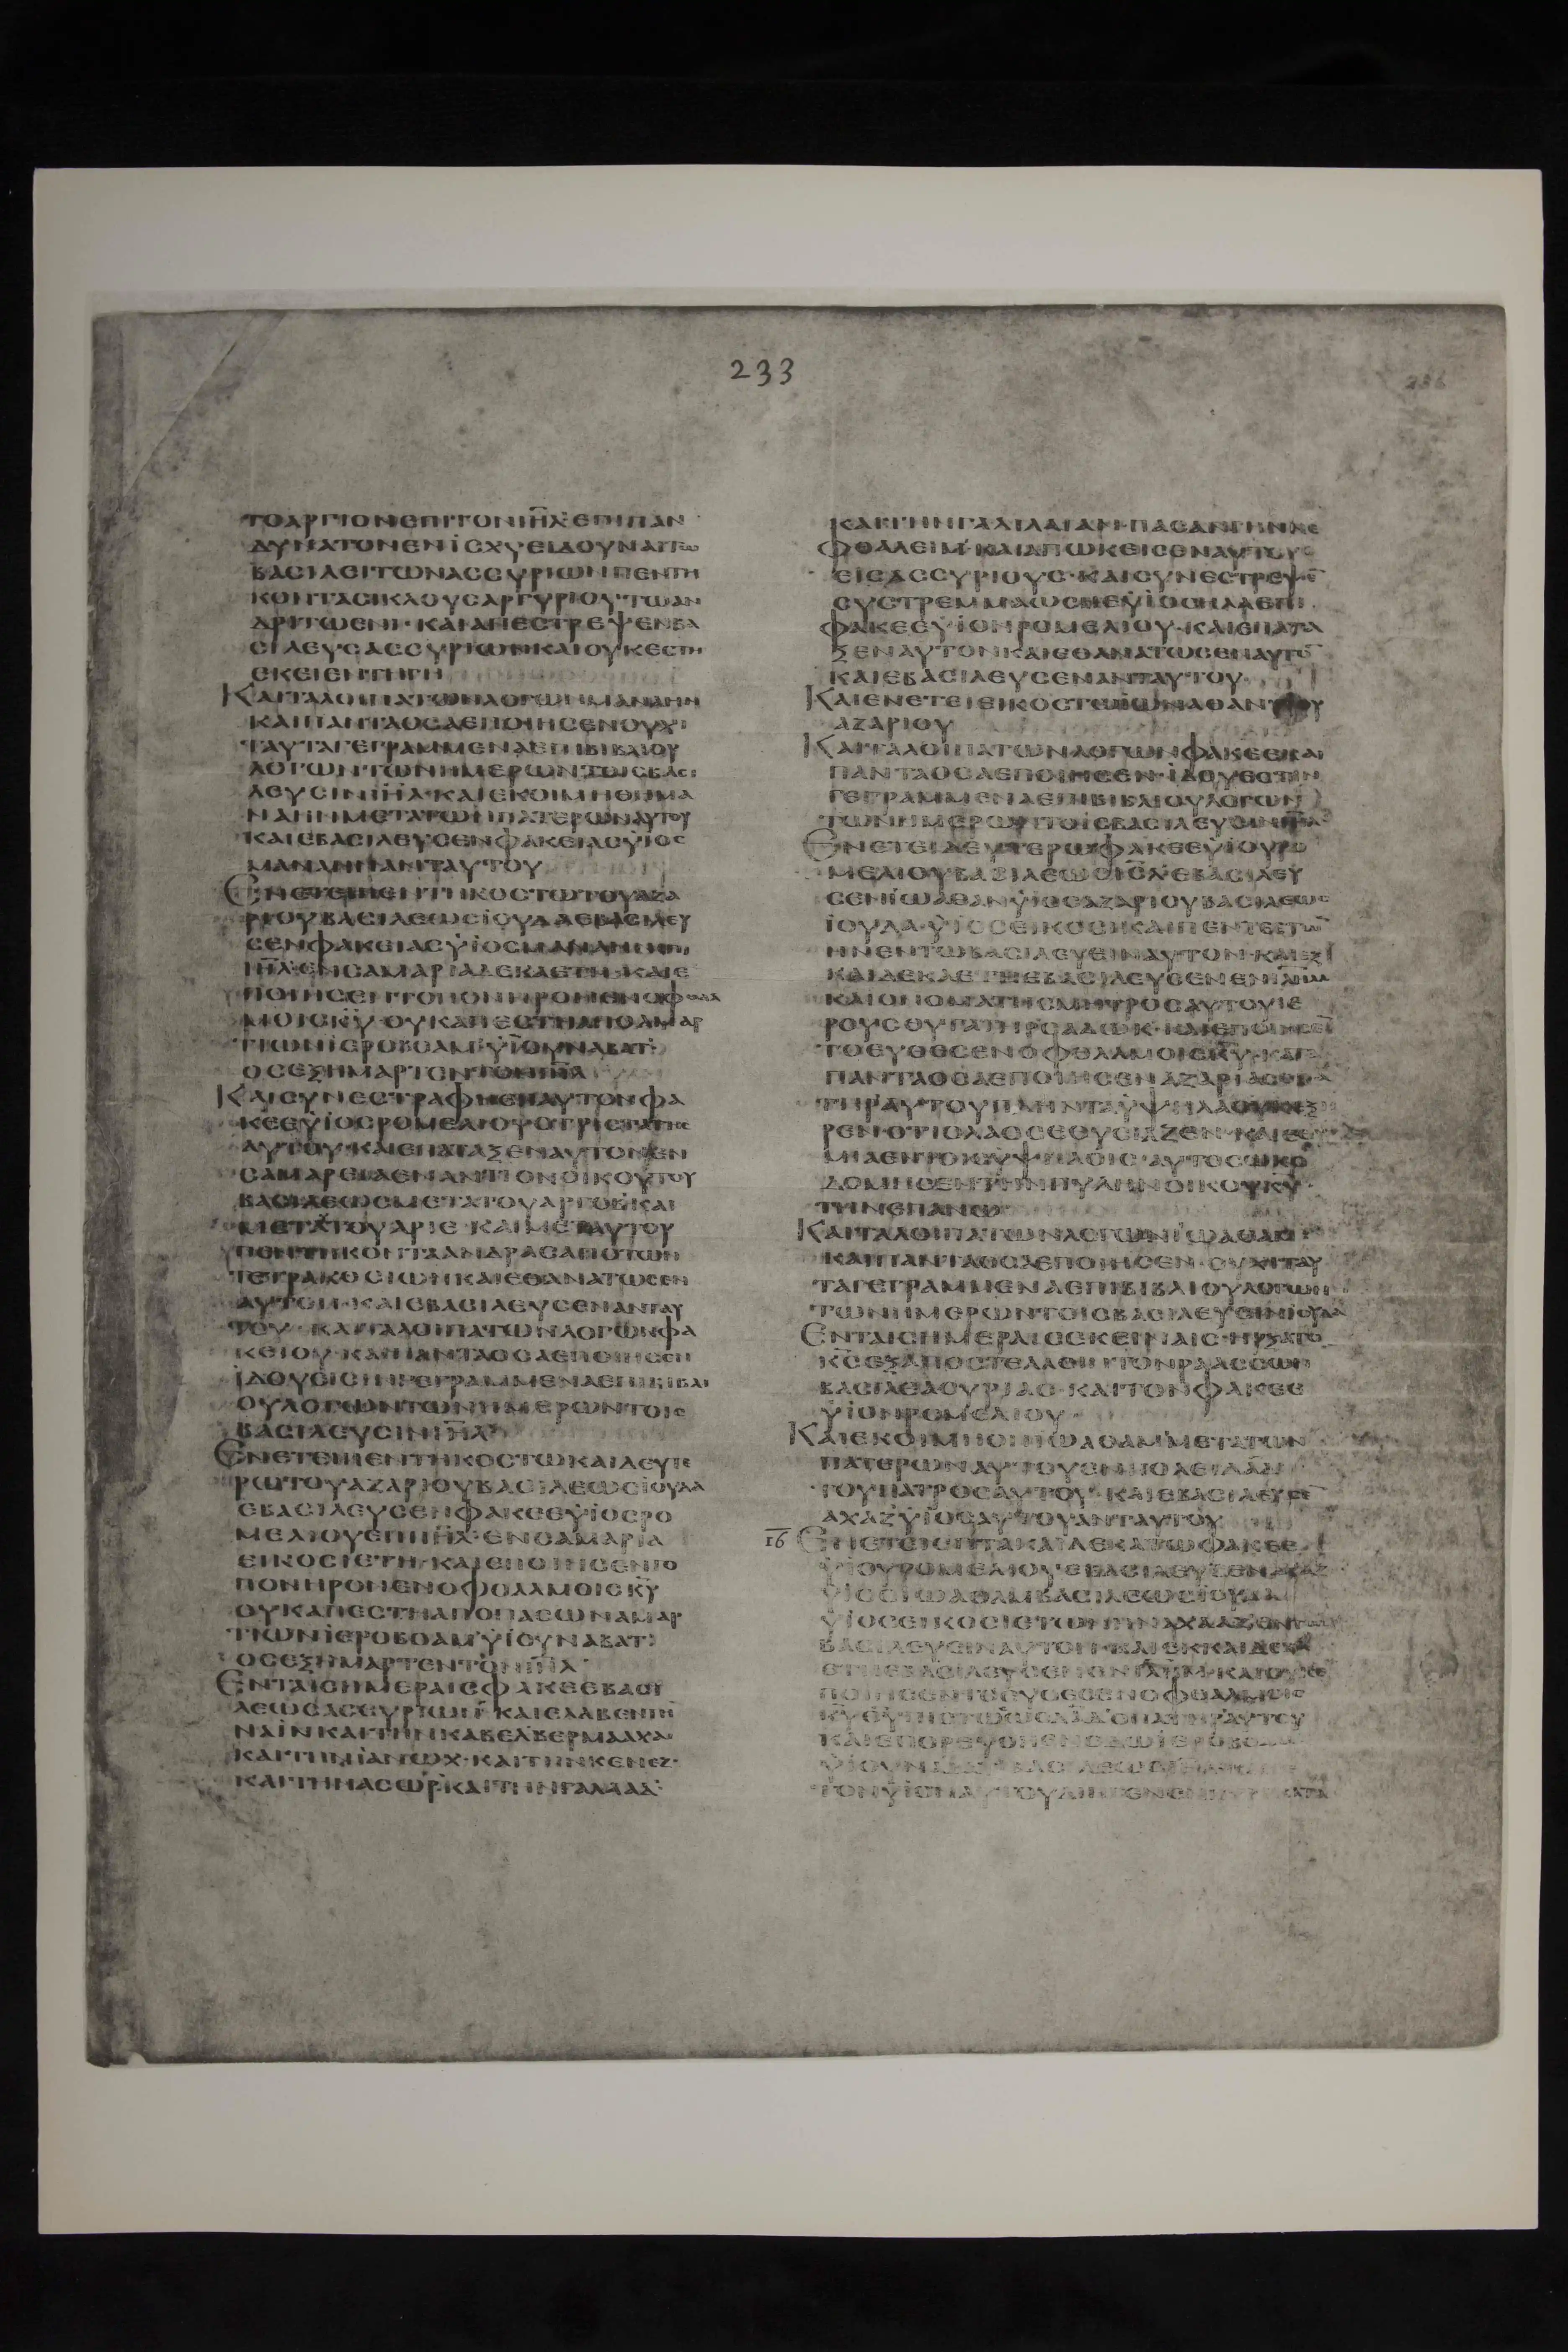 233
ΤΟΑΡΓΥΡΙΟΝΕΠΙΤΟΝΙΗΛ ΕΠΙΠΑΝ
ΔΥΝΑΤΟΝΕΝΙΣΧΥΕΙΔΟΥΝΑΙΤΩ
ΒΑΣΙΛΕΙΤΩΝΑΣΣΥΡΙΩΝΠΕΝΤΗ
ΚΟΝΤΑΣΙΚΛΟΥΣΑΡΓΥΡΙΟΥΤΩΑΝ
ΔΡΙΤΩΕΝΙ·ΚΑΙΑΠΕΣΤΡΕΨΕΝΒΑ
ΣΙΛΕΥΣΑΣΣΥΡΙΩΝΚΑΙΟΥΚΕΣΤΗ
ΕΚΕΙΕΝΤΗΓΗ
ΚΑΙΤΑΛΟΙΠΑΤΩΝΛΟΓΩΝΜΑΝΑΗΜ
ΚΑΙΠΑΝΤΑΟΣΑΕΠΟΙΗΣΕΝΟΥΧΙ
ΤΑΥΤΑΓΕΓΡΑΜΜΕΝΑΕΠΙΒΙΒΛΙΟΥ
ΛΟΓΩΝΤΩΝΗΜΕΡΩΝΤΟΙΣΒΑΣΙ
ΛΕΥΣΙΝΙΗΛ·ΚΑΙΕΚΟΙΜΗΘΗΜΑ
ΝΑΗΜΜΕΤΑΤΩΝΠΑΤΕΡΩΝΑΥΤΟΥ
ΚΑΙΕΒΑΣΙΛΕΥΣΕΝΦΑΚΕΙΑΣΥΙΟΣ
ΜΑΝΑΗΜΑΝΤΑΥΤΟΥ
ΕΝΕΤΕΙΠΕΝΤΗΚΟΣΤΩΤΟΥΑΖΑ
ΡΙΟΥΒΑΣΙΛΕΩΣΙΟΥΔΑΕΒΑΣΙΛΕΥ
ΣΕΝΦΑΚΕΙΑΣΥΙΟΣΜΑΝΑΗΜΕΠΙ
ΙΗΛ·ΕΝΣΑΜΑΡΙΑΔΕΚΑΕΤΗ·ΚΑΙΕ
ΠΟΙΗΣΕΝΤΟΠΟΝΗΡΟΝΕΝΟΦΘΑΛ
ΜΟΙΣΚΥ·ΟΥΚΑΠΕΣΤΗΑΠΟΑΜΑΡ
ΤΙΩΝΙΕΡΟΒΟΑΜΥΙΟΥΝΑΒΑΤ·
ΟΣΕΞΗΜΑΡΤΟΝΤΟΝΙΗΛ
ΚΑΙΣΥΝΕΣΤΡΑΦΗΕΠΑΥΤΟΝΦΑ
ΚΕΕΥΙΟΣΡΟΜΕΛΙΟΥΟΤΡΙΣΤΑΤΗΣ
ΑΥΤΟΥ·ΚΑΙΕΠΑΤΑΞΕΝΑΥΤΟΝΕΝ
ΣΑΜΑΡΕΙΑΕΝΑΝΤΙΟΝΟΙΚΟΥΤΟΥ
ΒΑΣΙΛΕΩΣΜΕΤΑΤΟΥΑΡΓΟΒΚΑΙ
ΜΕΤΑΤΟΥΑΡΙΕ·ΚΑΙΜΕΤΑΥΤΟΥ
ΠΕΝΤΗΚΟΝΤΑΑΝΔΡΑΣΑΠΟΤΩΝ
ΤΕΤΡΑΚΟΣΙΩΝΚΑΙΕΘΑΝΑΤΩΣΕΝ
ΑΥΤΟΝ·ΚΑΙΕΒΑΣΙΛΕΥΣΕΝΑΝΤΑΥ
ΤΟΥ·ΚΑΙΤΑΛΟΙΠΑΤΩΝΛΟΓΩΝΦΑ
ΚΕΙΟΥ·ΚΑΙΠΑΝΤΑΟΣΑΕΠΟΙΗΣΕΝ
ΙΔΟΥΕΙΣΙΝΓΕΓΡΑΜΜΕΝΑΕΠΙΒΙΒΛΙ
ΟΥΛΟΓΩΝΤΩΝΗΜΕΡΩΝΤΟΙΣ
ΒΑΣΙΛΕΥΣΙΝΙΗΛ
ΕΝΕΤΕΙΠΕΝΤΗΚΟΣΤΩΚΑΙΔΕΥΤΕ
ΡΩΤΟΥΑΖΑΡΙΟΥΒΑΣΙΛΕΩΣΙΟΥΔΑ
ΕΒΑΣΙΛΕΥΣΕΝΦΑΚΕΕΥΙΟΣΡΟ
ΜΕΛΙΟΥΕΠΙΙΗΛ·ΕΝΣΑΜΑΡΙΑ
ΕΙΚΟΣΙΕΤΗ·ΚΑΙΕΠΟΙΗΣΕΝΤΟ
ΠΟΝΗΡΟΝΕΝΟΦΘΑΛΜΟΙΣΚΥ
ΟΥΚΑΠΕΣΤΗΑΠΟΠΑΣΩΝΑΜΑΡ
ΤΙΩΝΙΕΡΟΒΟΑΜΥΙΟΥΝΑΒΑΤ·
ΟΣΕΞΗΜΑΡΤΕΝΤΟΝΙΗΛ
ΕΝΤΑΙΣΗΜΕΡΑΙΣΦΑΚΕΕΒΑΣΙ
ΛΕΩΣΑΣΣΥΡΙΩΝ·ΚΑΙΕΛΑΒΕΝΤΗΝ
ΝΑΙΝΚΑΙΤΗΝΚΑΒΕΛΒΕΡΜΑΑΧΑ
ΚΑΙΤΗΝΙΑΝΩΧ·ΚΑΙΤΗΝΚΕΝΕΖ·
ΚΑΙΤΗΝΑΣΩΡ·ΚΑΙΤΗΝΓΑΛΑΑΔ·
ΚΑΙΤΗΝΓΑΛΙΛΑΙΑΝ·ΠΑΣΑΝΓΗΝΝΕ
ΦΘΑΛΕΙΜ·ΚΑΙΑΠΩΚΕΙΣΕΝΑΥΤΟΥΣ
ΕΙΣΑΣΣΥΡΙΟΥΣ·ΚΑΙΣΥΝΕΣΤΡΕΨΕ
ΣΥΣΤΡΕΜΜΑΩΣΗΕΥΙΟΣΗΛΑΕΠΙ
ΦΑΚΕΕΥΙΟΝΡΟΜΕΛΙΟΥ·ΚΑΙΕΠΑΤΑ
ΞΕΝΑΥΤΟΝΚΑΙΕΘΑΝΑΤΩΣΕΝΑΥΤΟ
ΚΑΙΕΒΑΣΙΛΕΥΣΕΝΑΝΤΑΥΤΟΥ
ΚΑΙΕΝΕΤΕΙΕΙΚΟΣΤΩΙΩΝΑΘΑΝ
ΑΖΑΡΙΟΥ
ΚΑΙΤΑΛΟΙΠΑΤΩΝΛΟΓΩΝΦΑΚΕΕΚΑΙ
ΠΑΝΤΑΟΣΑΕΠΟΙΗΣΕΝ·ΙΔΟΥΕΣΤΙΝ
ΓΕΓΡΑΜΜΕΝΑΕΠΙΒΙΒΛΙΟΥΛΟΓΩΝ
ΤΩΝΗΜΕΡΩΝΤΟΙΣΒΑΣΙΛΕΥΣΙΝΙΗΛ
ΕΝΕΤΕΙΔΕΥΤΕΡΩΦΑΚΕΕΥΙΟΥΡΟ
ΜΕΛΙΟΥΒΑΣΙΛΕΩΣΙΗΛΕΒΑΣΙΛΕΥ
ΣΕΝΙΩΑΘΑΝΥΙΟΣΑΖΑΡΙΟΥΒΑΣΙΛΕΩΣ
ΙΟΥΔΑ·ΥΙΟΣΕΙΚΟΣΙΚΑΙΠΕΝΤΕΕΤΩ
ΗΝΕΝΤΩΒΑΣΙΛΕΥΕΙΝΑΥΤΟΝ·ΚΑΙΕΞ
ΚΑΙΔΕΚΑΕΤΗΕΒΑΣΙΛΕΥΣΕΝΕΝΙΛΗΜ
ΚΑΙΟΝΟΜΑΤΗΣΜΗΤΡΟΣΑΥΤΟΥΙΕ
ΡΟΥΣΘΥΓΑΤΗΡΣΑΔΩΚ·ΚΑΙΕΠΟΙΗΣΕ
ΤΟΕΥΘΕΣΕΝΟΦΘΑΛΜΟΙΣΚΥ·ΚΑΤΑ
ΠΑΝΤΑΟΣΑΕΠΟΙΗΣΕΝΑΖΑΡΙΑΣΟΠΑ
ΤΗΡΑΥΤΟΥΠΛΗΝΤΑΥΨΗΛΑΟΥΚΕΞ
ΡΕΝ·ΕΤΙΟΛΑΟΣΕΘΥΣΙΑΖΕΝ·ΚΑΙΕΘΥ
ΜΙΑΕΝΤΟΙΣΥΨΗΛΟΙΣ·ΑΥΤΟΣΩΚΟ
ΔΟΜΗΣΕΝΤΗΝΠΥΛΗΝΟΙΚΟΥΚΥ
ΤΗΝΕΠΑΝΩ
ΚΑΙΤΑΛΟΙΠΑΤΩΝΛΟΓΩΝΙΩΑΘΑΜ
ΚΑΙΠΑΝΤΑΟΣΑΕΠΟΙΗΣΕΝ·ΟΥΧΙΤΑΥ
ΤΑΓΕΓΡΑΜΜΕΝΑΕΠΙΒΙΒΛΙΟΥΛΟΓΩΝ
ΤΩΝΗΜΕΡΩΝΤΟΙΣΒΑΣΙΛΕΥΣΙΝΙΟΥΔΑ
ΕΝΤΑΙΣΗΜΕΡΑΙΣΕΚΕΙΝΑΙΣ·ΗΡΞΑΤΟ
ΚΣΕΞΑΠΟΣΤΕΛΛΕΙΝΤΟΝΡΑΑΣΣΩΝ
ΒΑΣΙΛΕΑΣΥΡΙΑΣ·ΚΑΙΤΟΝΦΑΚΕΕ
ΥΙΟΝΡΟΜΕΛΙΟΥ·
ΚΑΙΕΚΟΙΜΗΘΗΙΩΑΘΑΜΜΕΤΑΤΩΝ
ΠΑΤΕΡΩΝΑΥΤΟΥΕΝΠΟΛΕΙΔΑΔ
ΤΟΥΠΑΤΡΟΣΑΥΤΟΥ·ΚΑΙΕΒΑΣΙΛΕΥΣΕ
ΑΧΑΖΥΙΟΣΑΥΤΟΥΑΝΤΑΥΤΟΥ
16 ΕΝΕΤΕΙΕΠΤΑΚΑΙΔΕΚΑΤΩΦΑΚΕΕ
ΥΙΟΥΡΟΜΕΛΙΟΥΕΒΑΣΙΛΕΥΣΕΝΑΧΑΖ
ΥΙΟΣΙΩΑΘΑΜΒΑΣΙΛΕΩΣΙΟΥΔΑ
ΥΙΟΣΕΙΚΟΣΙΕΤΩΝΗΝΑΧΑΑΖΕΝΤΩ
ΒΑΣΙΛΕΥΕΙΝΑΥΤΟΝ·ΚΑΙΕΚΚΑΙΔΕΚΑ
ΕΤΗΕΒΑΣΙΛΕΥΣΕΝΕΝΙΛΗΜ·ΚΑΙΟΥΚΕ
ΠΟΙΗΣΕΝΤΟΕΥΘΕΣΕΝΟΦΘΑΛΜΟΙΣ
ΚΑΙΕΠΟΡΕΥΘΗΕΝΟΔΩΙΕΡΟΒΟ